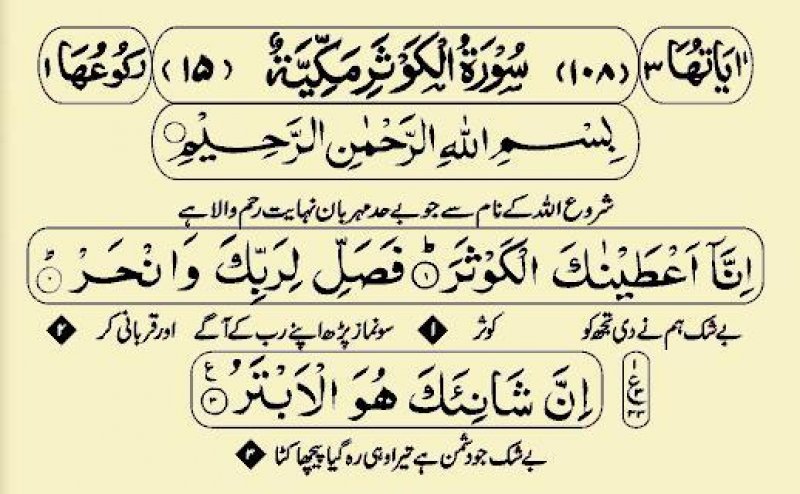 اٰیَاتُهَا ٣ (١٠٨) سُوْرَةُ الْكَوْثَرِ مَكِّيَّةٌ (١٥) رَكُوْعُهَا ١
بِسْمِ اللهِ الرَّحْمٰنِ الرَّحِيْمِ
شروع اللہ کے نام سے جو بے حد مہربان نہایت رحم والا ہے
اِنَّاۤ اَعْطَيْنٰكَ الْكَوْثَرَ ؕ١ فَصَلِّ لِرَبِّكَ وَانْحَرْ ؕ
بے شک ہم نے دی تجھ کو کوثر ۱ سو نماز پڑھ اپنے رب کے آگے اور قربانی کر ۲
اِنَّ شَانِئَكَ هُوَ الْاَبْتَرُ ٣ ع
بے شک جو دشمن ہے تیرا وہی رہ گیا پیچھا کٹا ۳